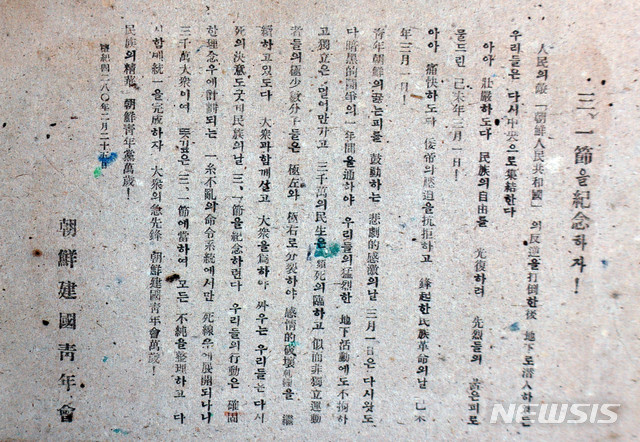 三、一節을 紀念하자!
人民의 敵「朝鮮人民共和國」의 反逆을 打倒한 後 地下로 潛入하였든
우리들은 다시 中央으로 集結한다
아아 壯嚴하도다 民族의 自由를 光復하려 先烈들의 붉은 피로
물드린 己未年 三月一日!
아아 痛快하도다 倭帝의 壓迫을 抗拒하고 蜂起한 民族革命의 날 己未
年 三月一日!
青年朝鮮의 끓는 피를 鼓動하는 悲劇的 感激의 날 三月一日은 다시 왓도
다 暗黑的 鬪爭의 一年間을 通하야 우리들의 猛烈한 地下活動에도 不拘하
고 獨立은 멀어만 가고 三千萬의 民生은 死의 臨하고 似而非 獨立運動
者들의 極少數分子들은 極左와 極右로 分裂하야 感情的 破壞를 繼
續하고 있도다 大衆과 함께 살고 大衆을 爲하야 싸우는 우리들은 다시
死의 決意도 굿게 民族의 날 三、一節을 紀念하련다 우리들의 行動은 確固
한 理念 우에 計劃되는 一糸不亂의 命令系統에서만 死線우에 展開되나니
三千萬 大衆이여 뜻깊은 三、一節에 當하여 모든 不純을 整理하고 다
시 함께 統一을 完成하자 大衆의 急先鋒 朝鮮建國青年會萬歲!
民族의 精華 朝鮮青年黨萬歲!
檀紀四二八〇年二月二十五日
朝鮮建國青年會
NEWSIS